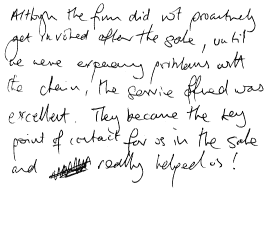 Although the firm did not proactively
get involved after the sale, until
we were experiencing problems with
the chain, the service offered was
excellent. They became the key
point of contact for us in the sale
and really helped us!